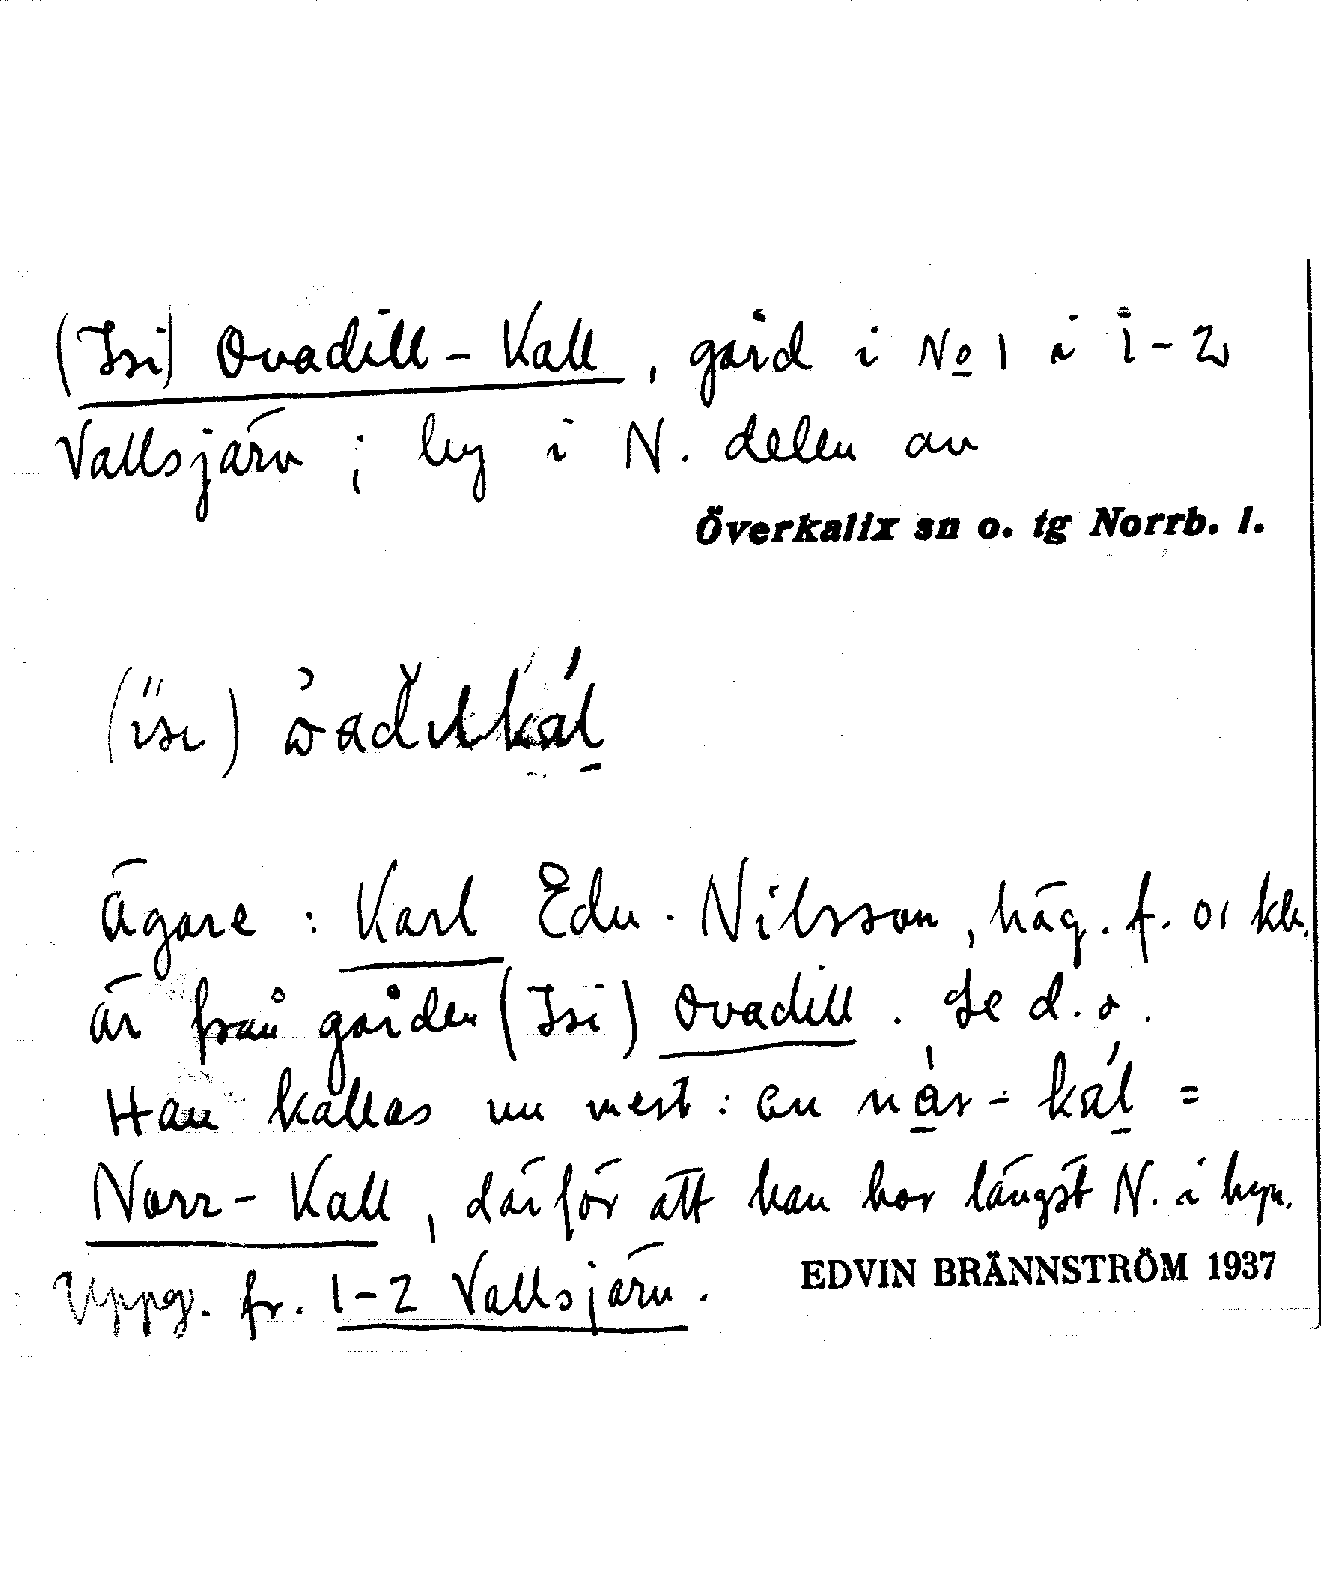 (Isi) Ovadill-Kall, gård i No 1 i 1-2
Vallsjärv; by i N. delen av
Överkalix sn o. tg Norrb. l.
Ägare: Karl Edv. Nilsson, häg. f. 01
är från gården (Isi) Ovadill. Se d.o.
Han kallas nu mest: an når-kál =
Norr-Kall, därför att han bor längst N. i byn.
EDVIN BRÄNNSTRÖM 1937
Uppg. fr. 1-2 Vallsjärv.